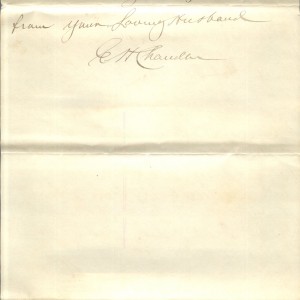 from your Loving Husband
E H Chandler